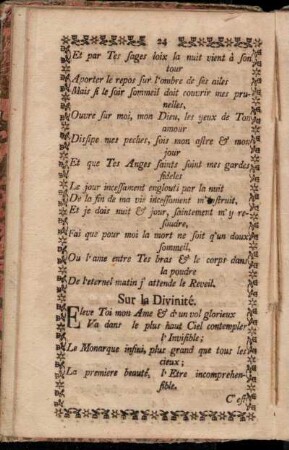 24
Et par Tes sages loix la nuit vient à son
tour
Aporter le repos sur l'ombre de ses ailes
Mais si le soir sommeil doit couvrir mes pru-
nelles,
Ouvre sur moi, mon Dieu, les yeux de Ton
amour
Dissipe mes pechés, sois mon astre & mon
jour
Et que Tes Anges saints soint mes gardes
fideles
Le jour incessament englouti par la nuit
De la fin de ma vie incessament m'instruit,
Et je dois nuit & jour, saintement m'y re-
soudre,
Fai que pour moi la mort ne soit q'un doux
sommeil,
Ou l'ame entre Tes bras & le corps dans
la poudre
De l'eternel matin j'attende le Reveil.
Sur la Divinité.
Eleve Toi mon Ame & d'un vol glorieux
Va dans le plus haut Ciel contempler
l'Invisible;
Le Monarque infini, plus grand que tous les
cieux;
La premiere beauté, l'Etre incomprehen-
sible.
C'est